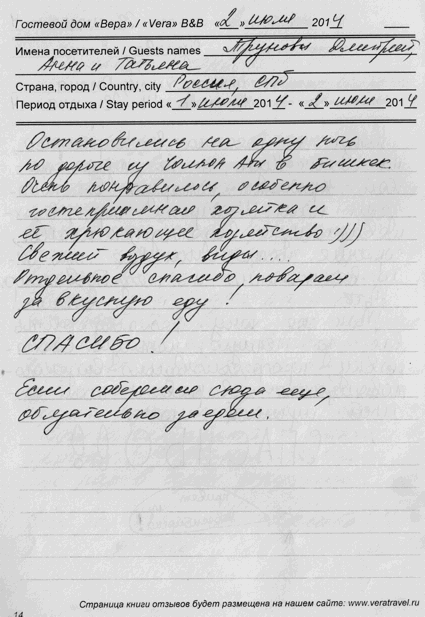 Гостевой дом «Вера» / «Vera» B&B «2» июля 2014
Имена посетителей / Guests names Труновы Дмитрий,
Анна и Татьяна
Страна, город / Country, city Россия, СПб
Период отдыха / Stay period «1» июля 2014 - «2» июля 2014
Остановились на одну ночь
по дороге из Чолпон Аты в Бишкек.
Очень понравилось, особенно
гостеприимная хозяйка и
её хрюкающее хозяйство :)))
Свежий воздух, виды....
Отдельное спасибо поварам
за вкусную еду!
СПАСИБО!
Если соберемся сюда еще,
обязательно заедем.
Страница книги отзывов будет размещена на нашем сайте: www.veratravel.ru
14